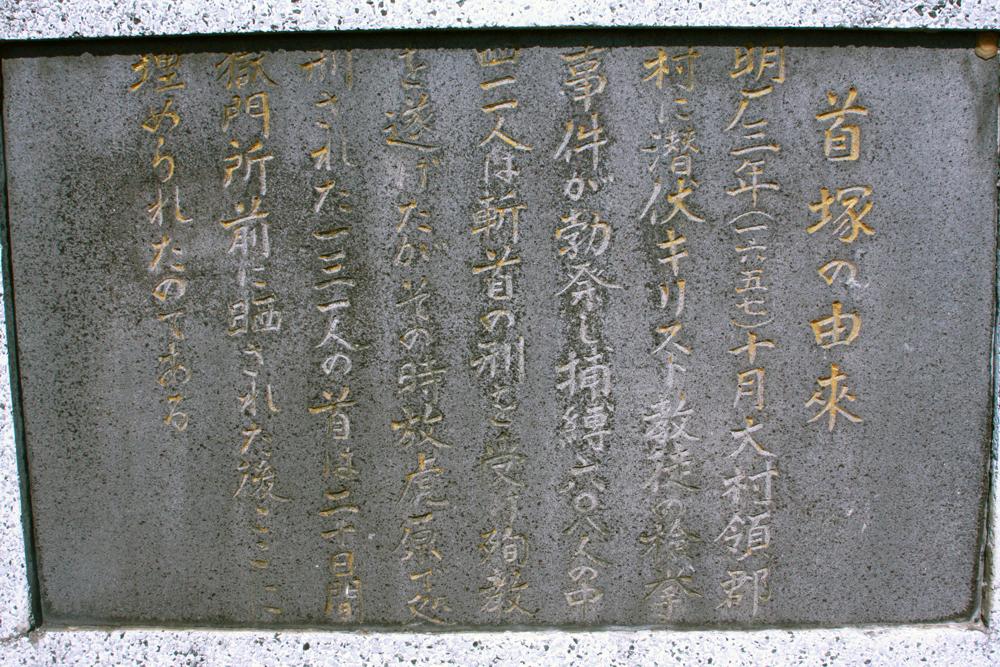 首塚の由來
明厂三年(一六五七)十月大村領郡
村に潜伏キリスト教徒の検挙
事件が勃発し捕縛六〇八人の中
四一一人は斬首の刑を受け殉教
を遂げたがその時放虎原で処
刑された一三一人の首は二十日間
獄門所前に晒された後ここに
埋められたのである